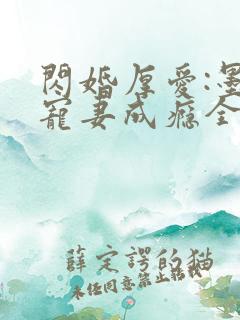 閃婚厚愛:墨
寵妻成癮全
薛定諤的貓
未经同意禁止转载